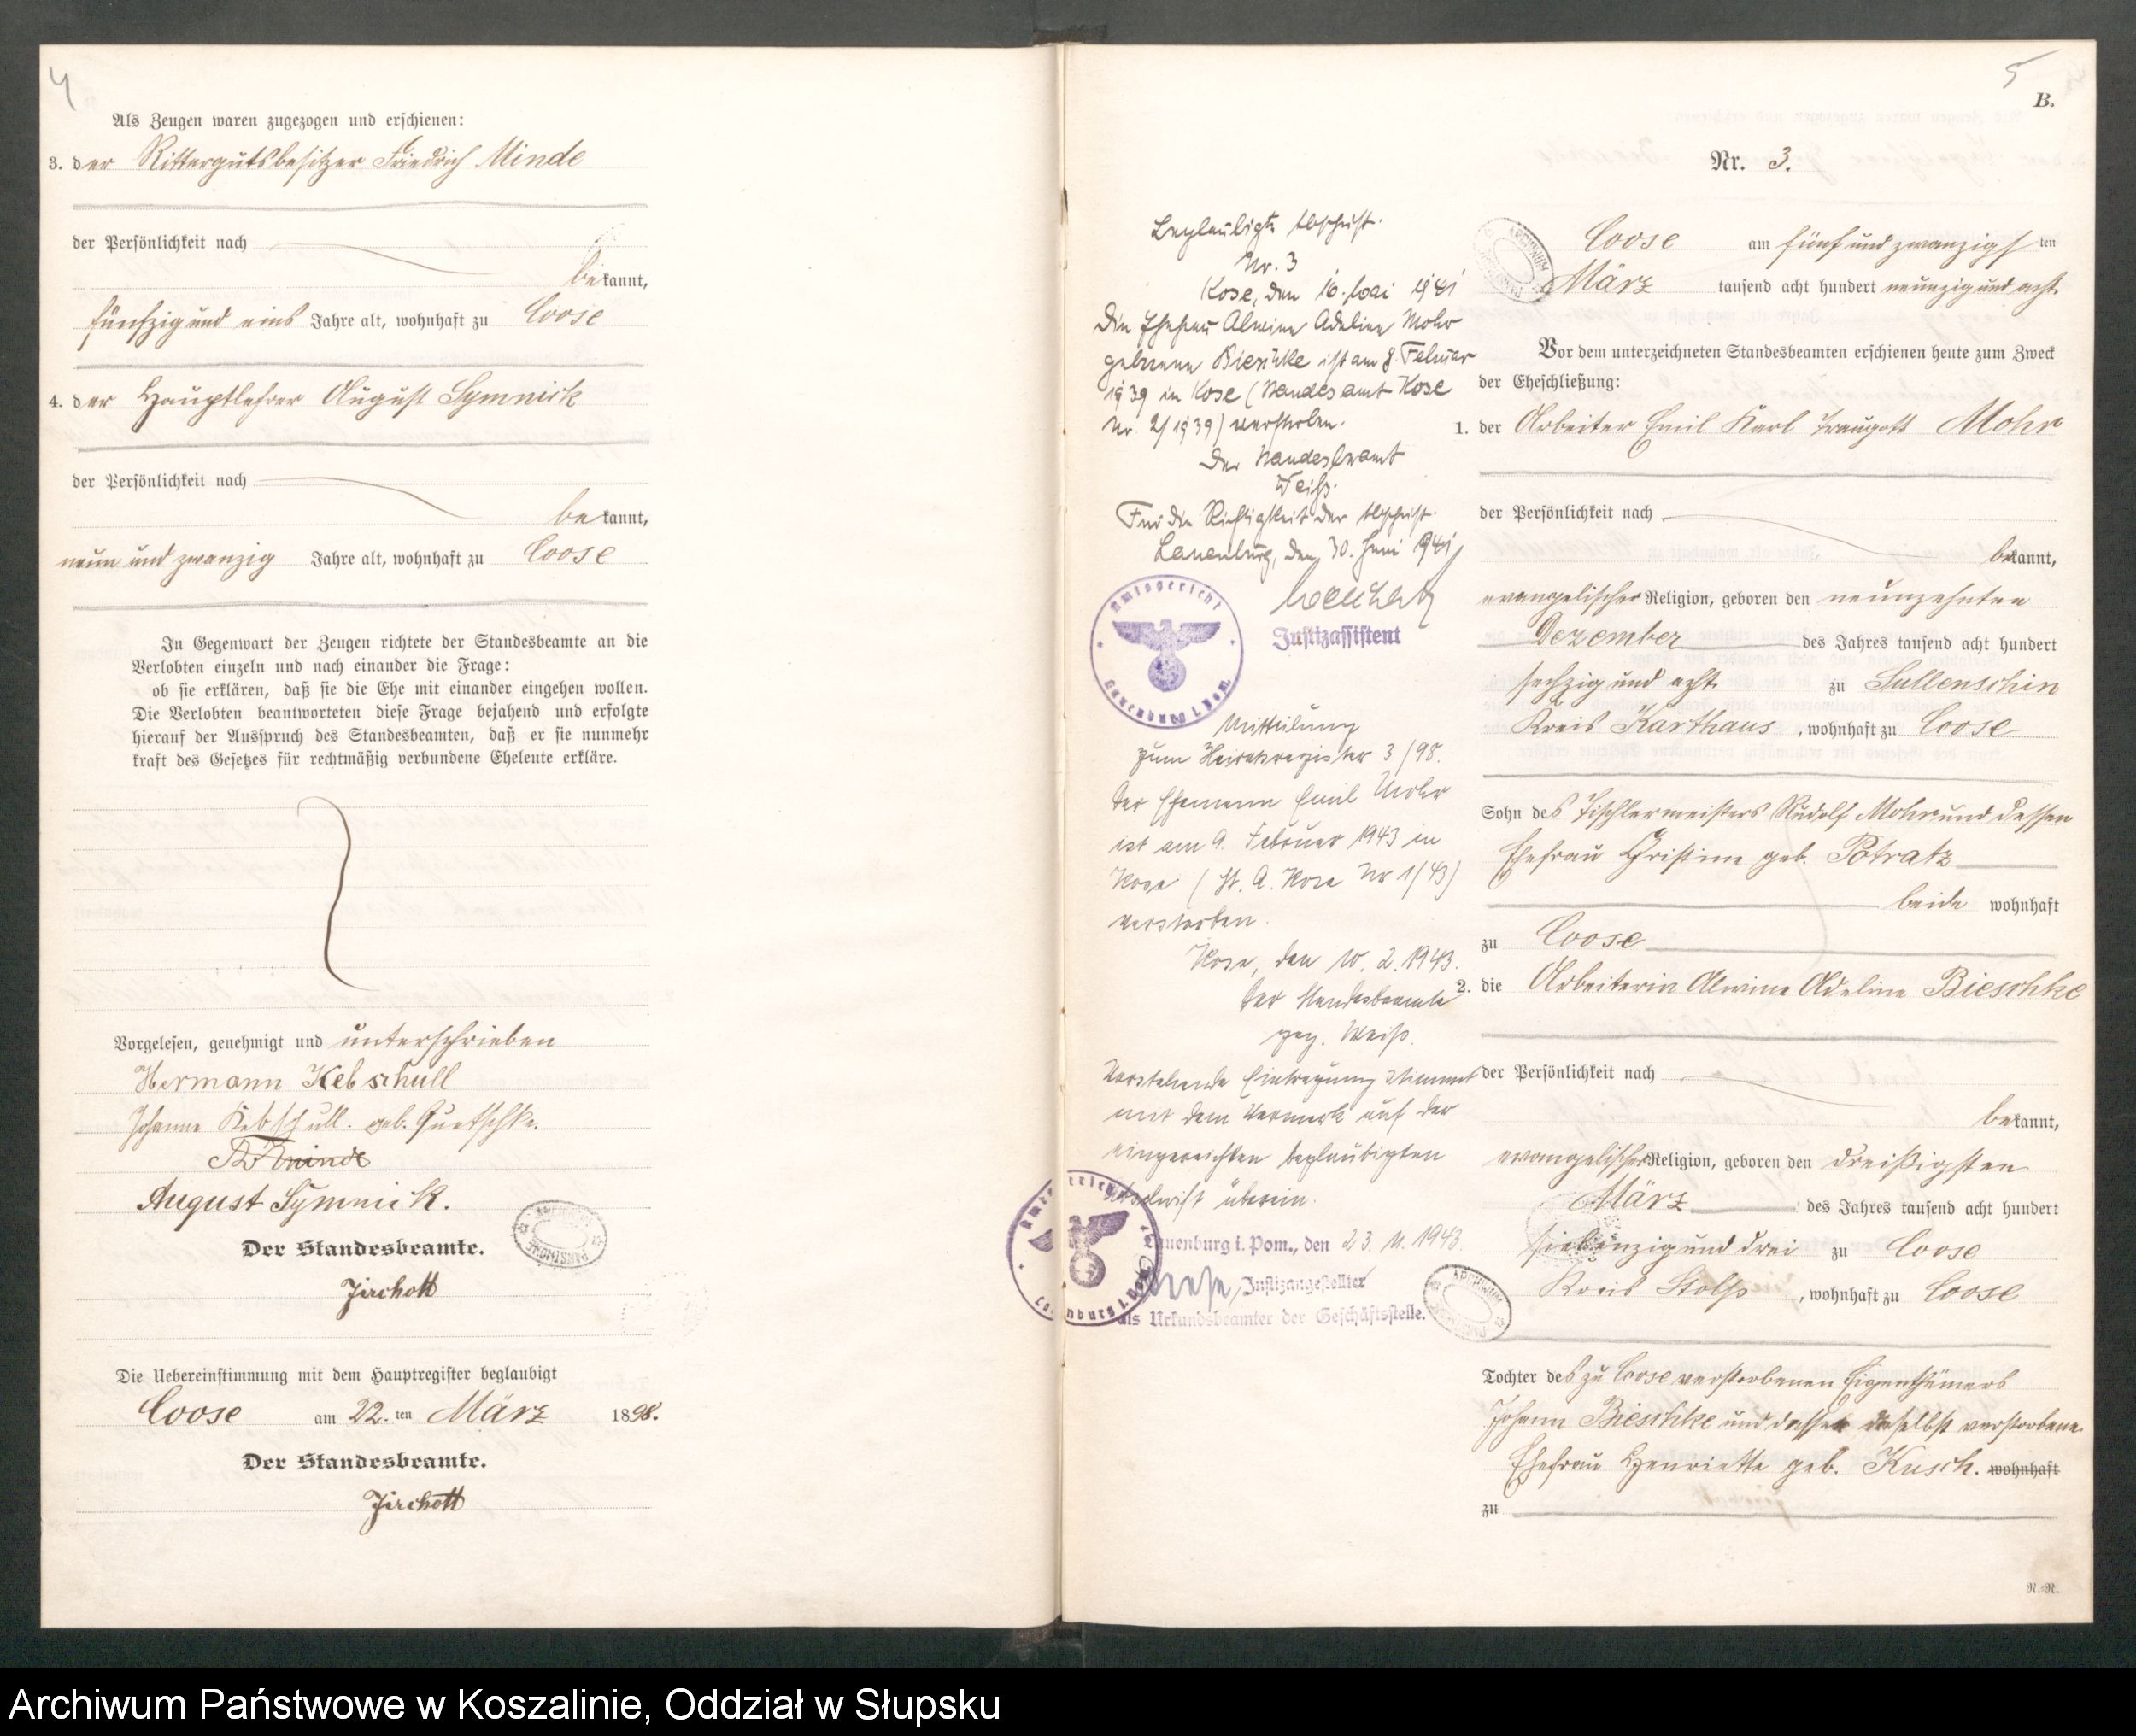 4
Als Zeugen waren zugezogen und erschienen:
3. der Rittergutsbesitzer Friedrich Minde
der Persönlichkeit nach
bekannt,
fünfzig und eins Jahre alt, wohnhaft zu Coose
4. der Hauptlehrer August Symnick
der Persönlichkeit nach
bekannt,
neun und zwanzig Jahre alt, wohnhaft zu Coose
In Gegenwart der Zeugen richtete der Standesbeamte an die
Verlobten einzeln und nach einander die Frage:
ob sie erklären, daß sie die Ehe mit einander eingehen wollen.
Die Verlobten beantworteten diese Frage bejahend und erfolgte
hierauf der Ausspruch des Standesbeamten, daß er sie nunmehr
kraft des Gesetzes für rechtmäßig verbundene Eheleute erkläre.
Vorgelesen, genehmigt und unterschrieben
Hermann Kebschull
Johanna Kebschull. geb. Quetschke.
Minde
August Symnick.
Der Standesbeamte.
Jirchott
Die Uebereinstimmung mit dem Hauptregister beglaubigt
Coose am 22.ten März 1898.
Der Standesbeamte.
Jirchott
5
B.
Nr. 3.
Beglaubigte Abschrift.
Nr. 3
Kose, den 16. Mai 1941
Die Ehefrau Alwine Adeline Mohr
geborene Bieschke ist am 8. Februar
1939 in Kose (Standesamt Kose
Nr. 2/1939) verstorben.
Der Standesbeamte
Weiß.
Für die Richtigkeit der Abschrift.
Lauenburg, den 30. Juni 1941
Justizassistent
Amtsgericht
Lauenburg i. Pom.
Mitteilung
zum Heiratsregister 3/98.
Der Ehemann Emil Mohr
ist am 9. Februar 1943 in
Kose (St. A. Kose Nr 1/43)
verstorben.
Kose, den 10. 2. 1943.
Der Standesbeamte
gez. Weiß.
Vorstehende Eintragung stimmt
mit dem Vermerk auf der
eingereichten beglaubigten
Abschrift überein.
Lauenburg i. Pom., den 23. 11. 1943.
Justizangestellter
als Urkundsbeamter der Geschäftsstelle.
Coose am fünf und zwanzigsten
März tausend acht hundert neunzig und acht
Vor dem unterzeichneten Standesbeamten erschienen heute zum Zweck
der Eheschließung:
1. der Arbeiter Emil Karl Traugott Mohr
der Persönlichkeit nach
bekannt,
evangelischer Religion, geboren den neunzehnten
Dezember des Jahres tausend acht hundert
sechzig und acht zu Sullenschin
Kreis Karthaus, wohnhaft zu Coose
Sohn des Tischlermeisters Rudolf Mohr und dessen
Ehefrau Christine geb. Potratz
beide wohnhaft
zu Coose
2. die Arbeiterin Alwine Adeline Bieschke
der Persönlichkeit nach
bekannt,
evangelischer Religion, geboren den dreißigsten
März des Jahres tausend acht hundert
siebenzig und drei zu Coose
Kreis Stolp, wohnhaft zu Coose
Tochter des zu Coose verstorbenen Eigenthümers
Johann Bieschke und dessen daselbst verstorbene
Ehefrau Henriette geb. Kusch. wohnhaft
zu
R.-R.
Archiwum Państwowe w Koszalinie, Oddział w Słupsku